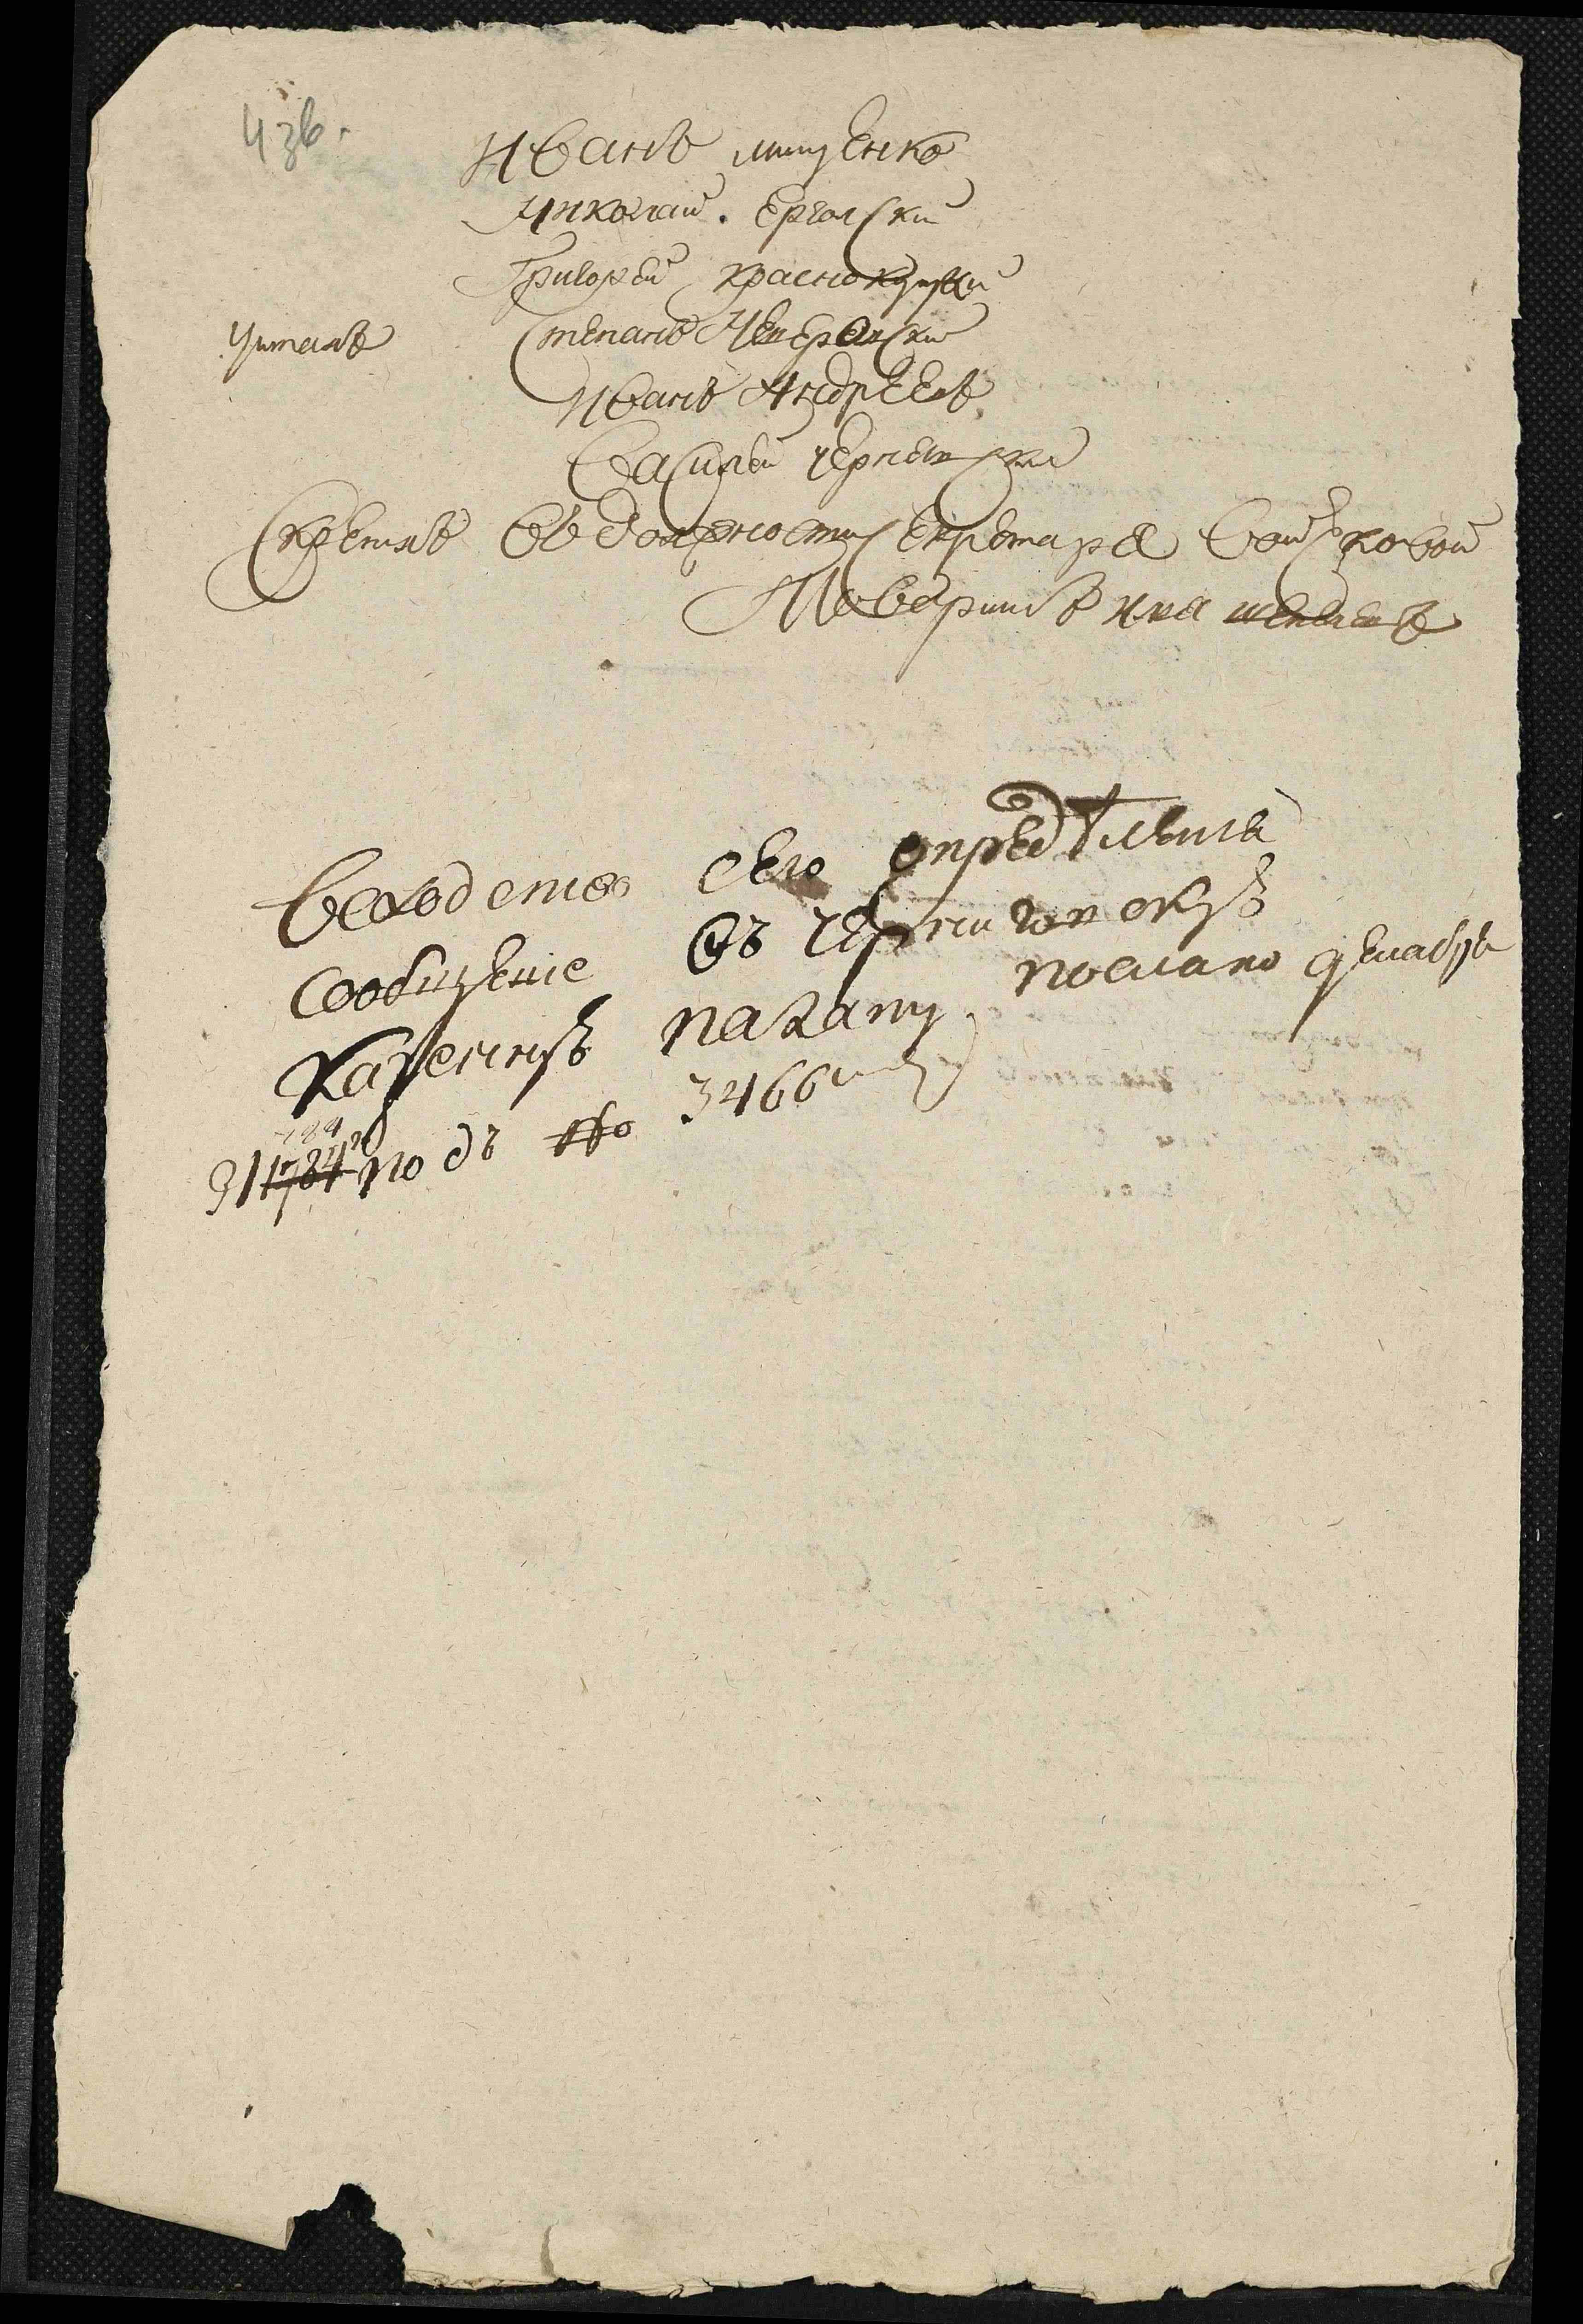 43в.
Иванъ мищенко
Николай. Ергольский
Григорей краснокуцкий
Читалъ Степанъ
Иванъ Андреевъ
Василей
Скрепилъ въ должности секретаря войсковой
товарищъ
всходство сего определения
сообщение въ черниговскую
казенную палату послано декабря
31 1784 подъ № 3466